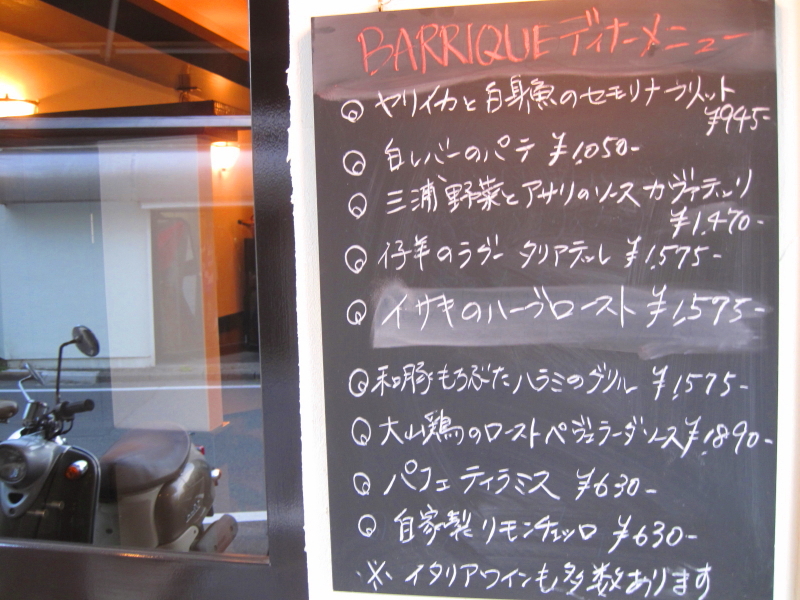 BARRIQUE ディナーメニュー
ヤリイカと白身魚のセモリナフリット
¥945-
白レバーのパテ ¥1,050-
三浦野菜とアサリのソース カヴァテッリ
¥1,470-
仔羊のラグー タリアテッレ ¥1,575-
イサキのハーブロースト ¥1,575-
和豚もちぶた ハラミのグリル ¥1,575-
大山鶏のロースト ペヴェラーダソース ¥1,890-
パフェ ティラミス ¥630-
自家製リモンチェッロ ¥630-
※ イタリアワインも多数あります